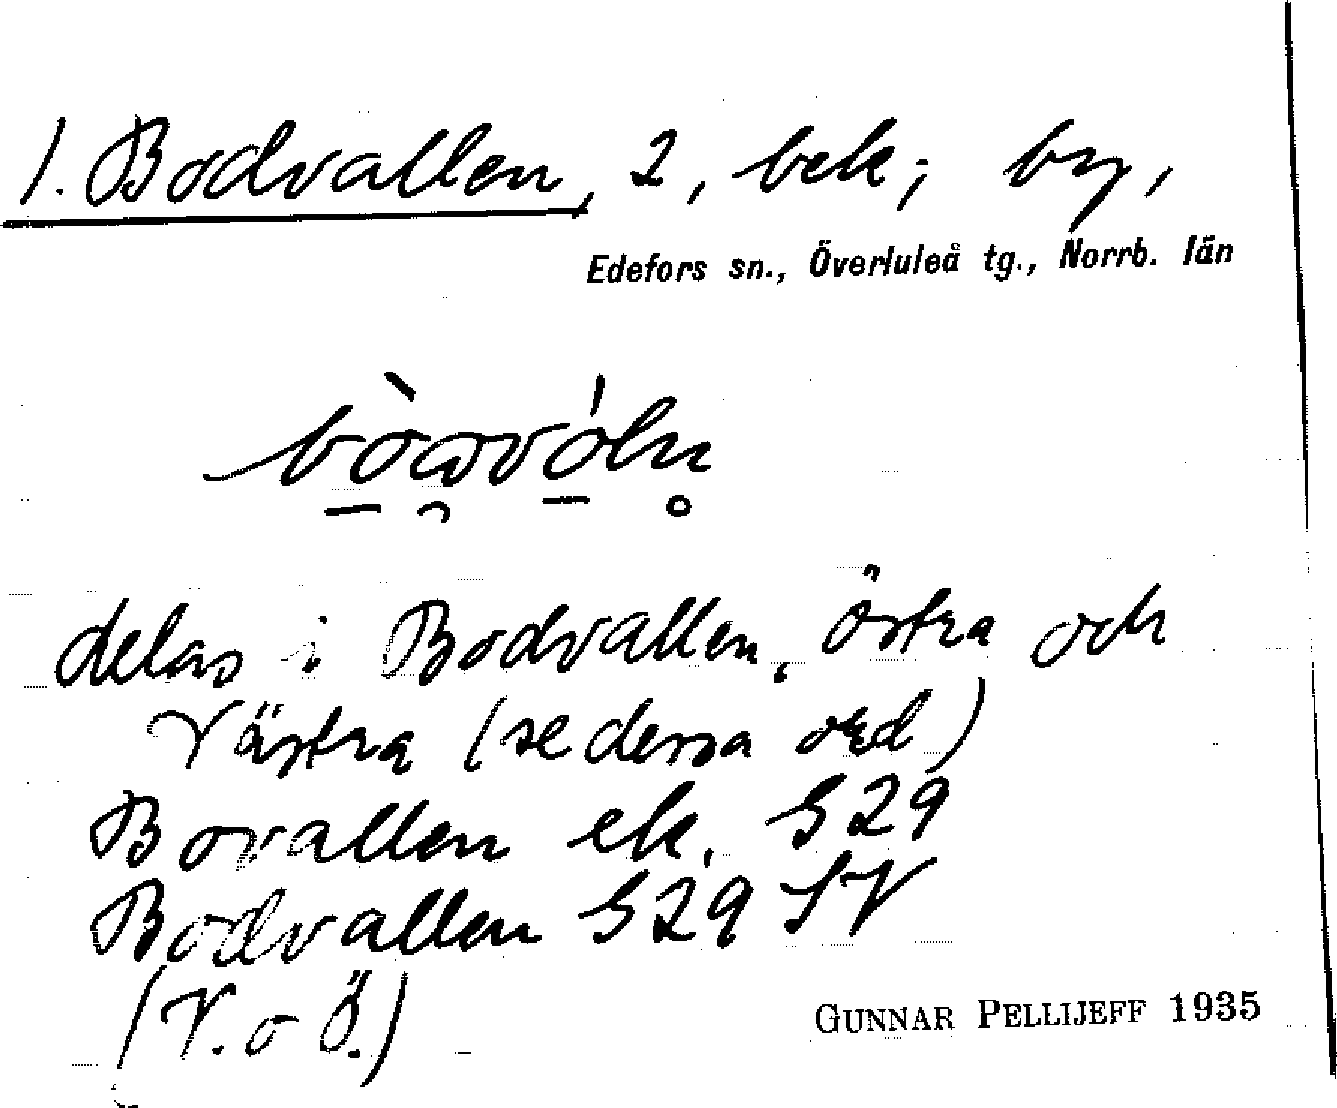 1. Bodvallen, 2, bek; by,
Edefors sn., Överluleå tg., Norrb. län
delas i Bodvallen, Östra och
Västra (se dessa ord)
Bovallen ek. S29
Bodvallen S29 SV
(V. o Ö.)
GUNNAR PELLIJEFF 1935